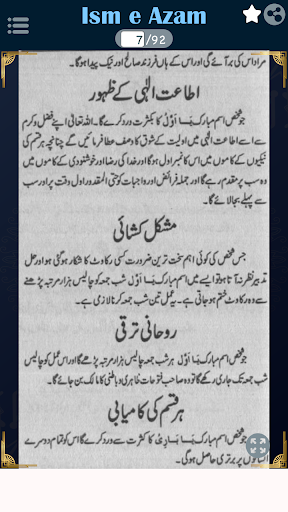 Ism e Azam
7/92
مراد اس کی بر آئے گی اور اس کے ہاں فرزند صالح اور نیک پیدا ہوگا۔
اطاعت الٰہی کے ظہور
جو شخص اسم مبارک یَا اَوَّلُ کا بکثرت ورد کرے گا۔ اللہ تعالیٰ اپنے فضل و کرم
سے اسے اطاعت الٰہی میں اولیت کے شوق کا وصف عطا فرمائیں گے چنانچہ ہر قسم کی
نیکیوں کے کاموں میں اس کا نمبر اول ہوگا اور خدا کی رضا اور خوشنودی کے کاموں میں
وہ سب پر مقدم رہے گا۔ اور جملہ فرائض اور واجبات کو حتی المقدور اول وقت پر اور سب
سے پہلے بجا لائے گا۔
مشکل کشائی
جس شخص کی کوئی اہم سخت ترین ضرورت کسی رکاوٹ کا شکار ہوگئی ہو اور حل
تدبیر نظر نہ آتا ہو تو ایسے میں اسم مبارک یَا اَوَّلُ شب جمعہ کو چالیس ہزار مرتبہ پڑھنے
سے وہ رکاوٹ ختم ہو جاتی ہے۔ یہ عمل تین شب جمعہ کرنا لازمی ہے۔
روحانی ترقی
جو شخص اسم مبارک یَا اَوَّلُ ہر شب جمعہ چالیس ہزار مرتبہ پڑھے گا اور اس عمل کو چالیس
شب جمعہ تک جاری رکھے گا تو وہ صاحب فتوحات ظاہری و باطنی کا مالک بن جائے گا۔
ہر قسم کی کامیابی
جو شخص اسم مبارک یَا بَارِئُ کا کثرت سے ورد کرے گا اس کو تمام دوسرے
انسانوں پر برتری حاصل ہوگی۔